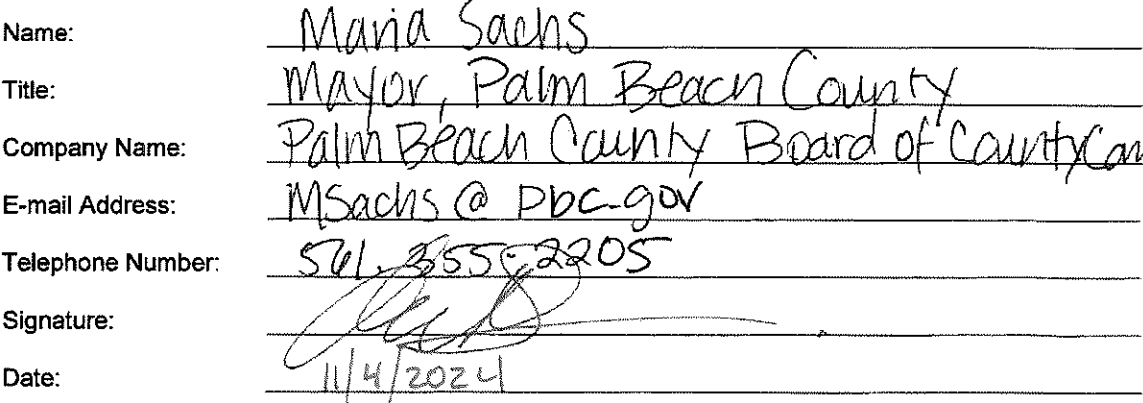 Name: Maria Sachs
Title: Mayor, Palm Beach County
Company Name: Palm Beach County Board of County Com
E-mail Address: MSachs@pbc.gov
Telephone Number: 561.355.2205
Signature:
Date: 11/4/2024